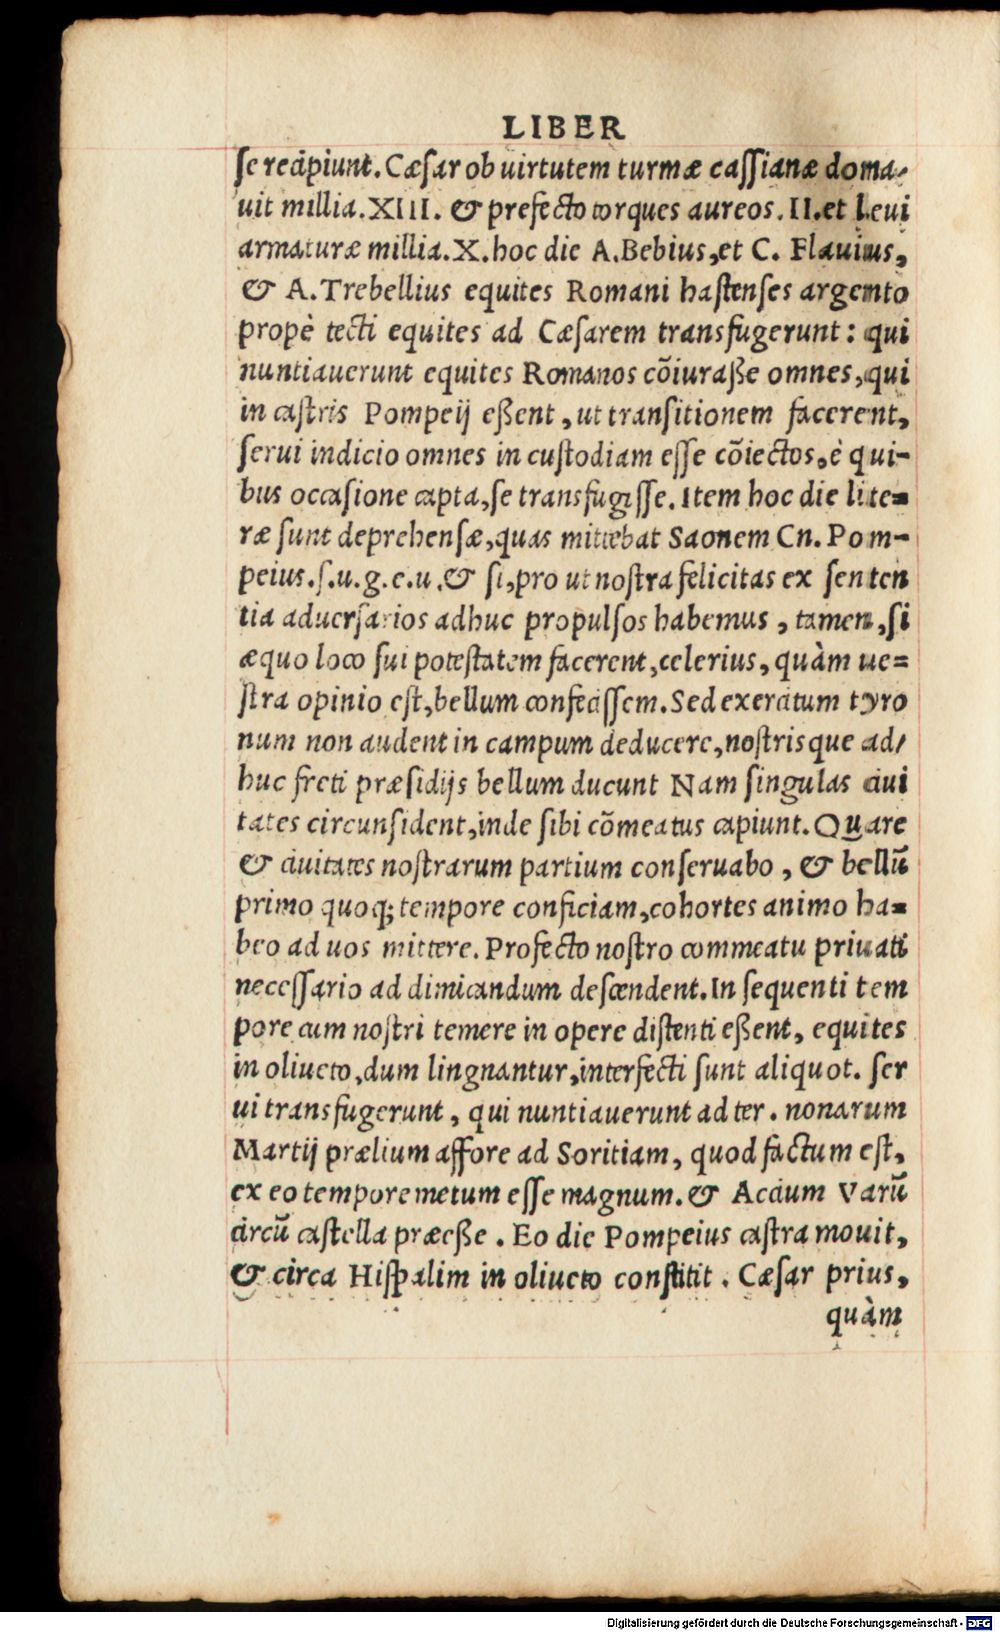 LIBER
ſe recipiunt. Cæſar ob uirtutem turmæ caſſianæ doma-
uit millia. XIII. & prefecto torques aureos. II. et Leui
armaturæ millia. X. hoc die A. Bebius, et C. Flauius,
& A. Trebellius equites Romani haſtenſes argento
propè tecti equites ad Cæſarem transfugerunt: qui
nuntiauerunt equites Romanos cõiuraße omnes, qui
in caſtris Pompeij eßent, ut tranſitionem facerent,
ſerui indicio omnes in cuſtodiam eſſe cõiectos, è qui-
bus occaſione capta, ſe transfugiſſe. Item hoc die lite=
ræ ſunt deprehenſæ, quas mittebat Saonem Cn. Pom-
peius. ſ. u. g. e. u. & ſi, pro ut noſtra felicitas ex ſenten
tia aduerſarios adhuc propulſos habemus, tamen, ſi
æquo loco ſui poteſtatem facerent, celerius, quàm ue=
ſtra opinio eſt, bellum confeciſſem. Sed exercitum tyro
num non audent in campum deducere, noſtrisque ad/
huc freti præſidijs bellum ducunt Nam ſingulas ciui
tates circunſident, inde ſibi cõmeatus capiunt. Quare
& ciuitates noſtrarum partium conſeruabo, & bellũ
primo quoq; tempore conficiam, cohortes animo ha=
beo ad uos mittere. Profecto noſtro commeatu priuati
neceſſario ad dimicandum deſcendent. In ſequenti tem
pore cum noſtri temere in opere diſtenti eßent, equites
in oliueto, dum lingnantur, interfecti ſunt aliquot. ſer
ui transfugerunt, qui nuntiauerunt ad ter. nonarum
Martij prælium affore ad Soritiam, quod factum eſt,
ex eo tempore metum eſſe magnum. & Accium Varũ
circũ caſtella præeße. Eo die Pompeius caſtra mouit,
& circa Hiſpalim in oliueto conſtitit. Cæſar prius,
quàm
Digitalisierung gefördert durch die Deutsche Forschungsgemeinschaft - DFG